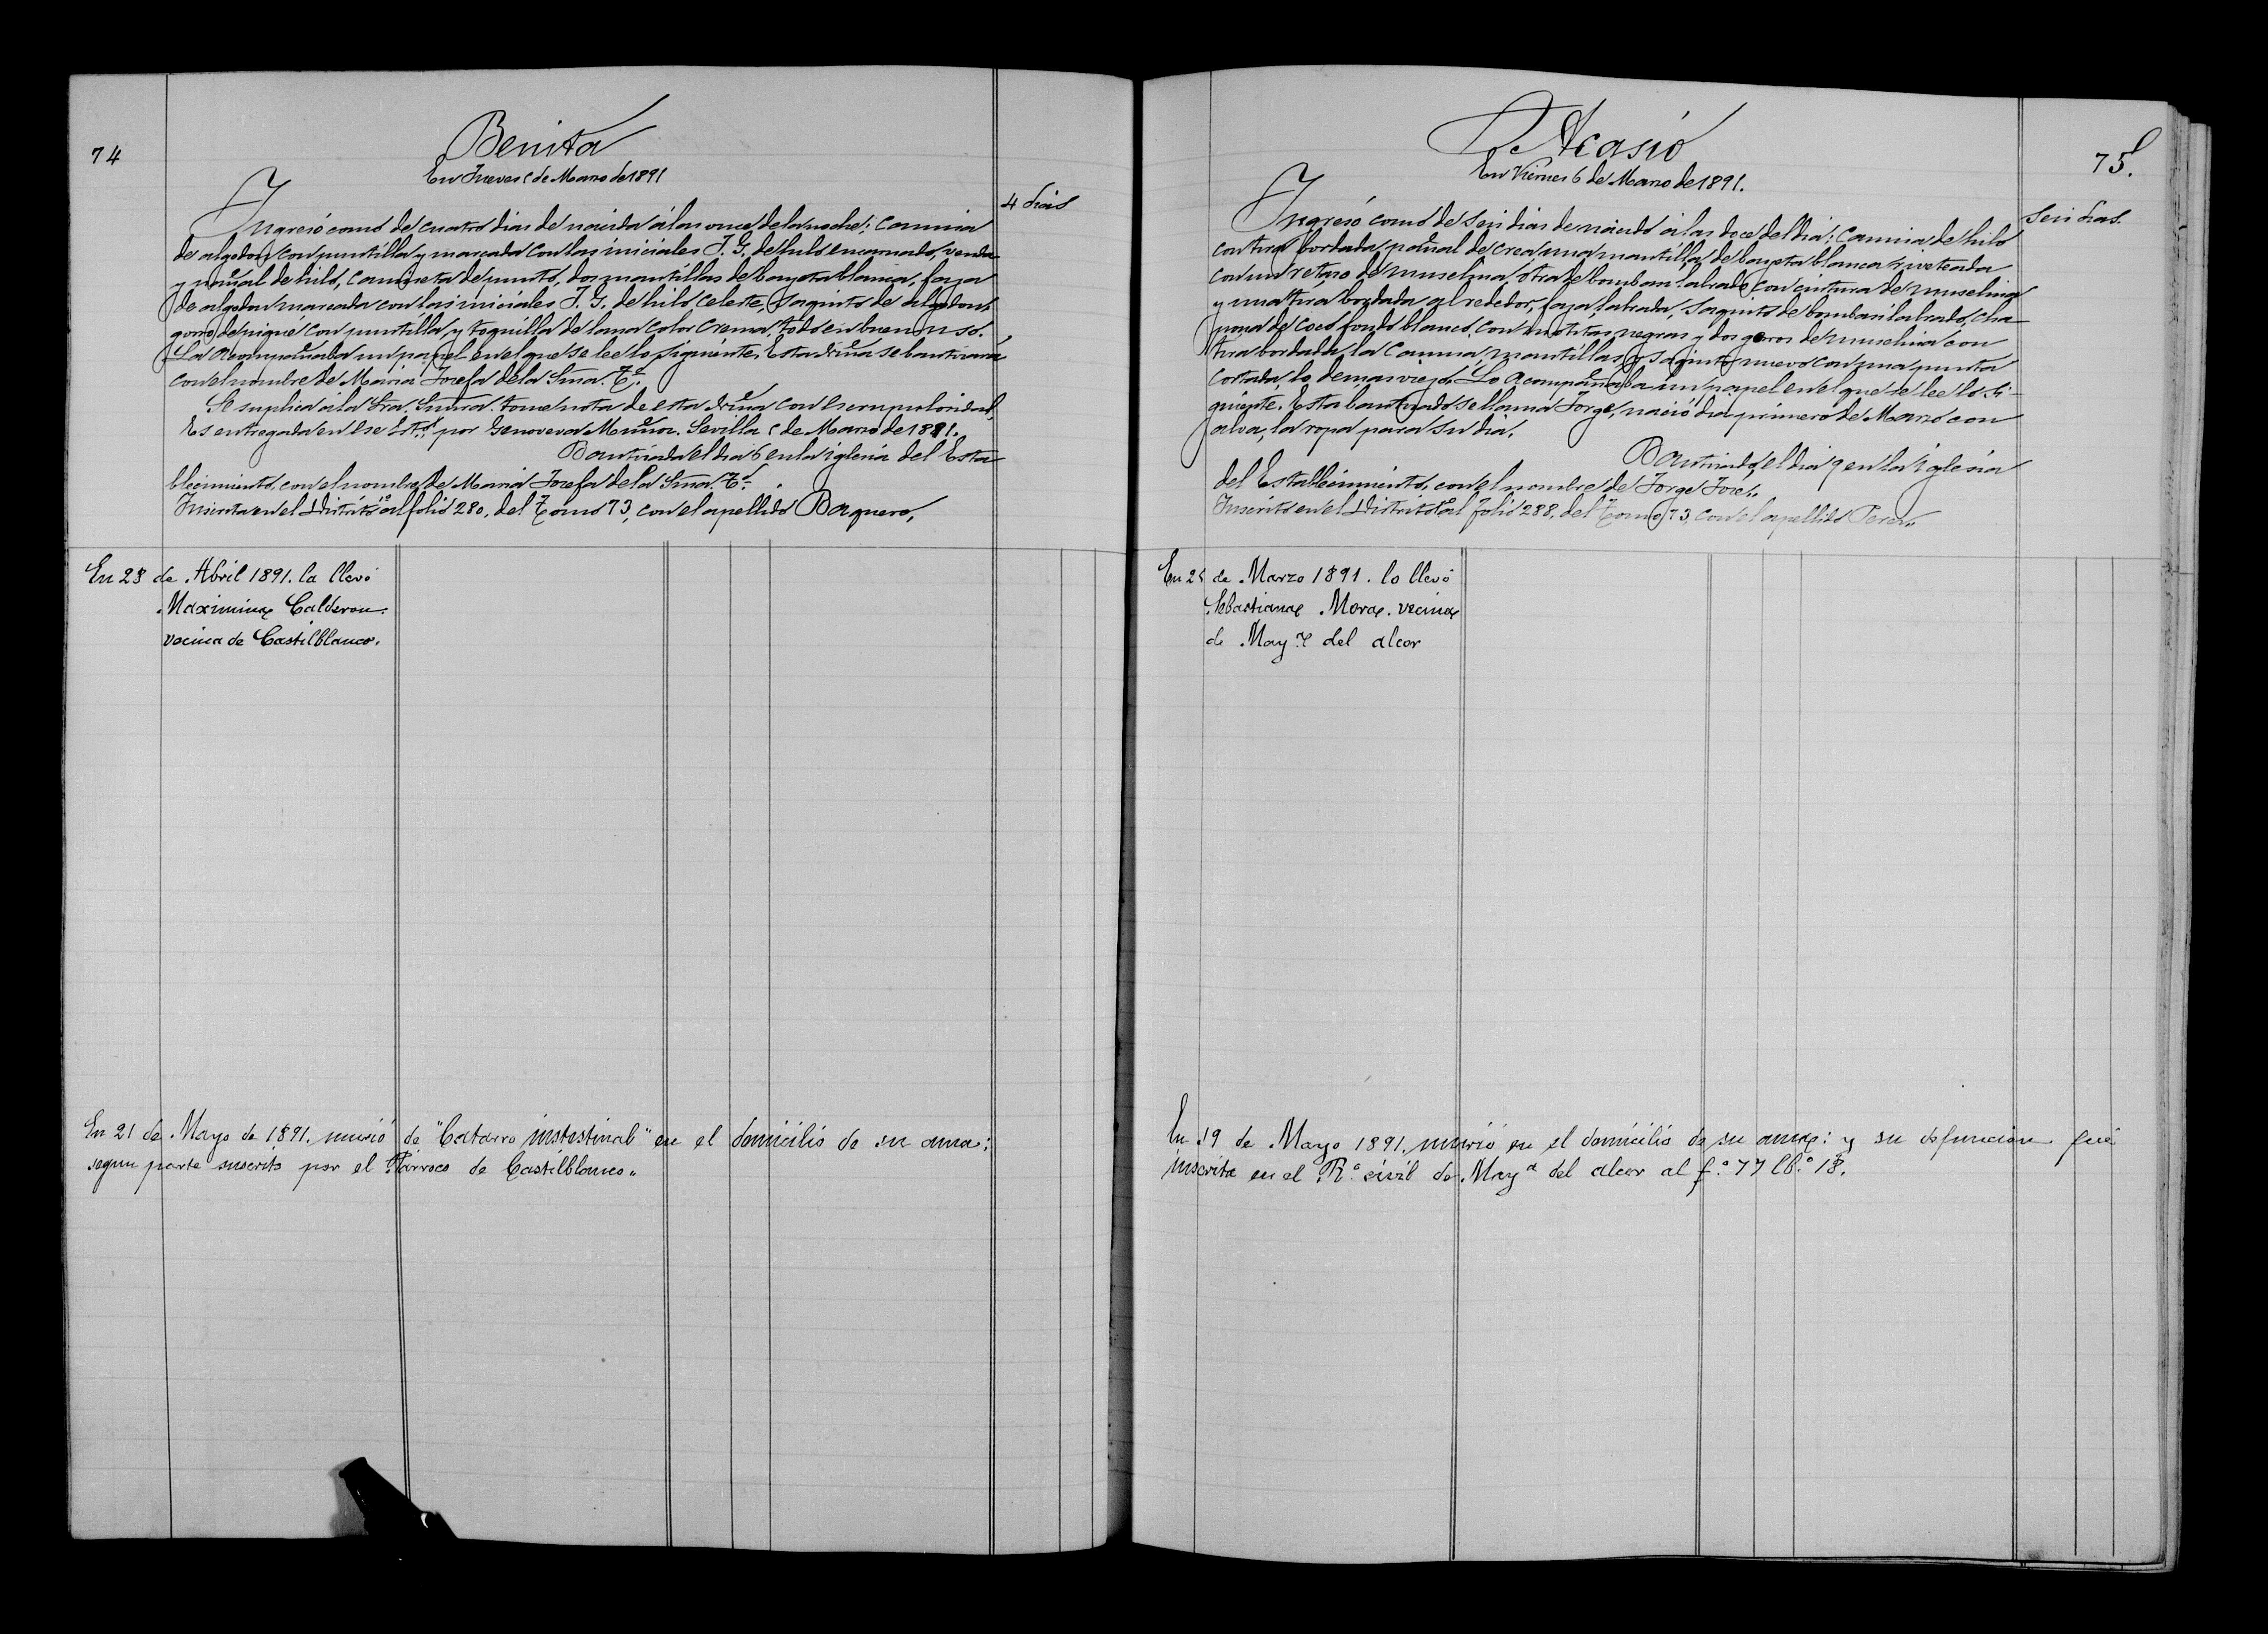 74
Benita
En Jueves 5 de Marzo de 1891
4 dias
Ingresó como de cuatro dias de nacida á las once de la noche; camisa
de algodon con puntilla y marcada con las iniciales J. G. de hilo encarnado, venda
y pañal de hilo, camiseta de punto, dos mantillas de bayeta blanca, faja
de algodon marcada con las iniciales J. G. de hilo celeste, saquito de algodon,
gorro de piqué con puntilla y toquilla de lana color crema, todo en buen uso.
La acompañaba un papel en el que se lee lo siguiente. Esta niña se bautizará
con el nombre de Maria Josefa de la Sma. Td.
Se suplica á la Sra. tome nota de esta niña con escrupulosidad
Es entregada en ese Est.º por Genoveva Muñoz. Sevilla 5 de Marzo de 1891.
Bautizada el dia 6 en la iglesia del Esta
blecimiento, con el nombre de Maria Josefa de la Sma. Td.
Inscrita en el Distrito al folio 280, del Tomo 73, con el apellido Baquero,
En 23 de Abril 1891. la llevó
Maximina Calderon
vecina de Castilblanco.
En 21 de Mayo de 1891. murió de "Catarro instestinal" en el domicilio de su ama:
segun parte suscrito por el Párroco de Castilblanco.,
75.
Acasio
En Viernes 6 de Marzo de 1891.
Seis dias.
Ingresó como de seis dias de nacido á las doce del dia; camisa de hilo
con tira bordada, pañal de crea, una mantilla de bayeta blanca riveteada
con un retazo de muselina, otra de bombasi labrado con cintura de muselina
y una tira bordada alrededor, faja labrada, saquito de bombasi labrado, cha
pona de coco fondo blanco con motitas negras y dos gorros de muselina con
tira bordada, la camisa, mantillas y saquito nuevo con una punta
cortada, lo demas viejo. Lo acompañaba un papel en el que se lee lo si-
guiente. Esta bautizado se llama Jorge, nació dia primero de Marzo con
alva, la ropa para su dia.
Bautizado, el dia 7 en la iglesia
del Establecimiento, con el nombre de Jorge José.,
Inscrito en el Distrito al folio 288, del Tomo 73, con el apellido Perez.,
En 25 de Marzo 1891. lo llevó
Sebastiana Mora. vecina
de May.ª del alcor
En 19 de Mayo 1891. murió en el domicilio de su ama: y su defuncion fué
inscrita en el R.º civil de May.ª del alcor al f.º 77 lb.º 18.